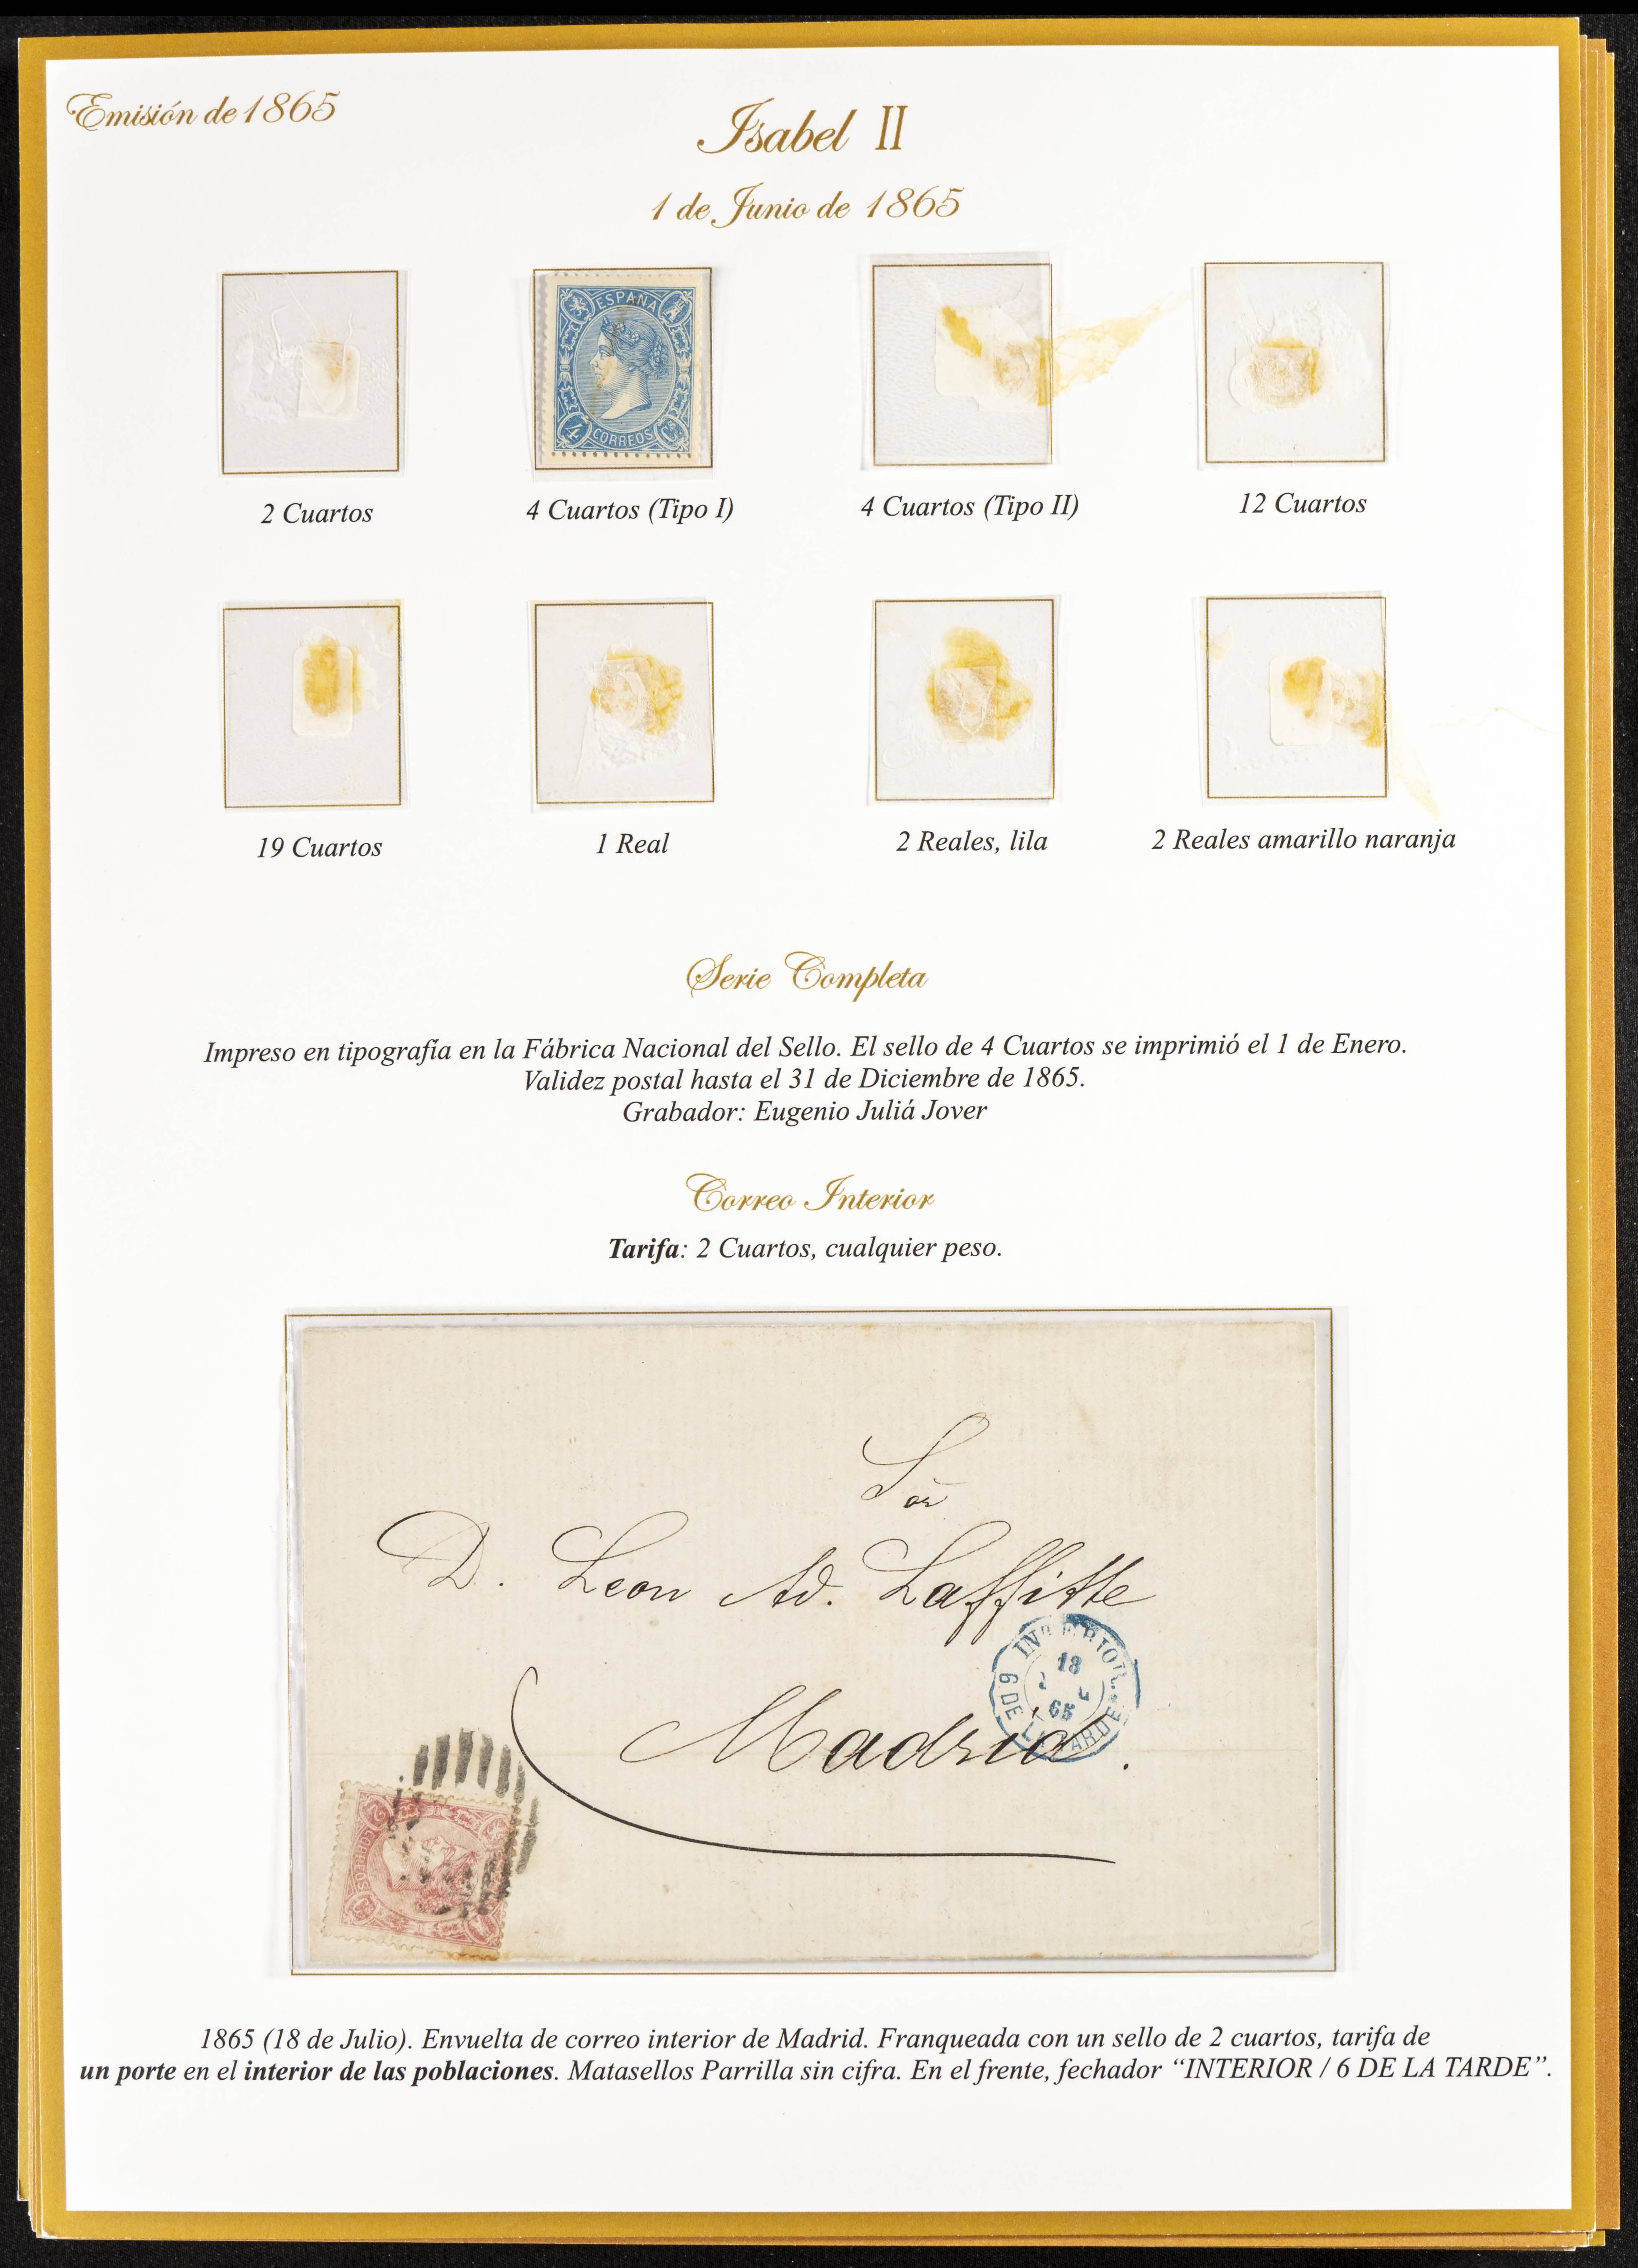 Emisión de 1865
Isabel II
1 de Junio de 1865
ESPAÑA
4 CORREOS Cs
2 Cuartos
4 Cuartos (Tipo I)
4 Cuartos (Tipo II)
12 Cuartos
19 Cuartos
1 Real
2 Reales, lila
2 Reales amarillo naranja
Serie Completa
Impreso en tipografía en la Fábrica Nacional del Sello. El sello de 4 Cuartos se imprimió el 1 de Enero.
Validez postal hasta el 31 de Diciembre de 1865.
Grabador: Eugenio Juliá Jover
Correo Interior
Tarifa: 2 Cuartos, cualquier peso.
Sor
D. Leon Ad. Laffitte
INTERIOR.
18
65
6 DE LA TARDE
Madrid.
2 CORREOS
1865 (18 de Julio). Envuelta de correo interior de Madrid. Franqueada con un sello de 2 cuartos, tarifa de
un porte en el interior de las poblaciones. Matasellos Parrilla sin cifra. En el frente, fechador “INTERIOR / 6 DE LA TARDE”.